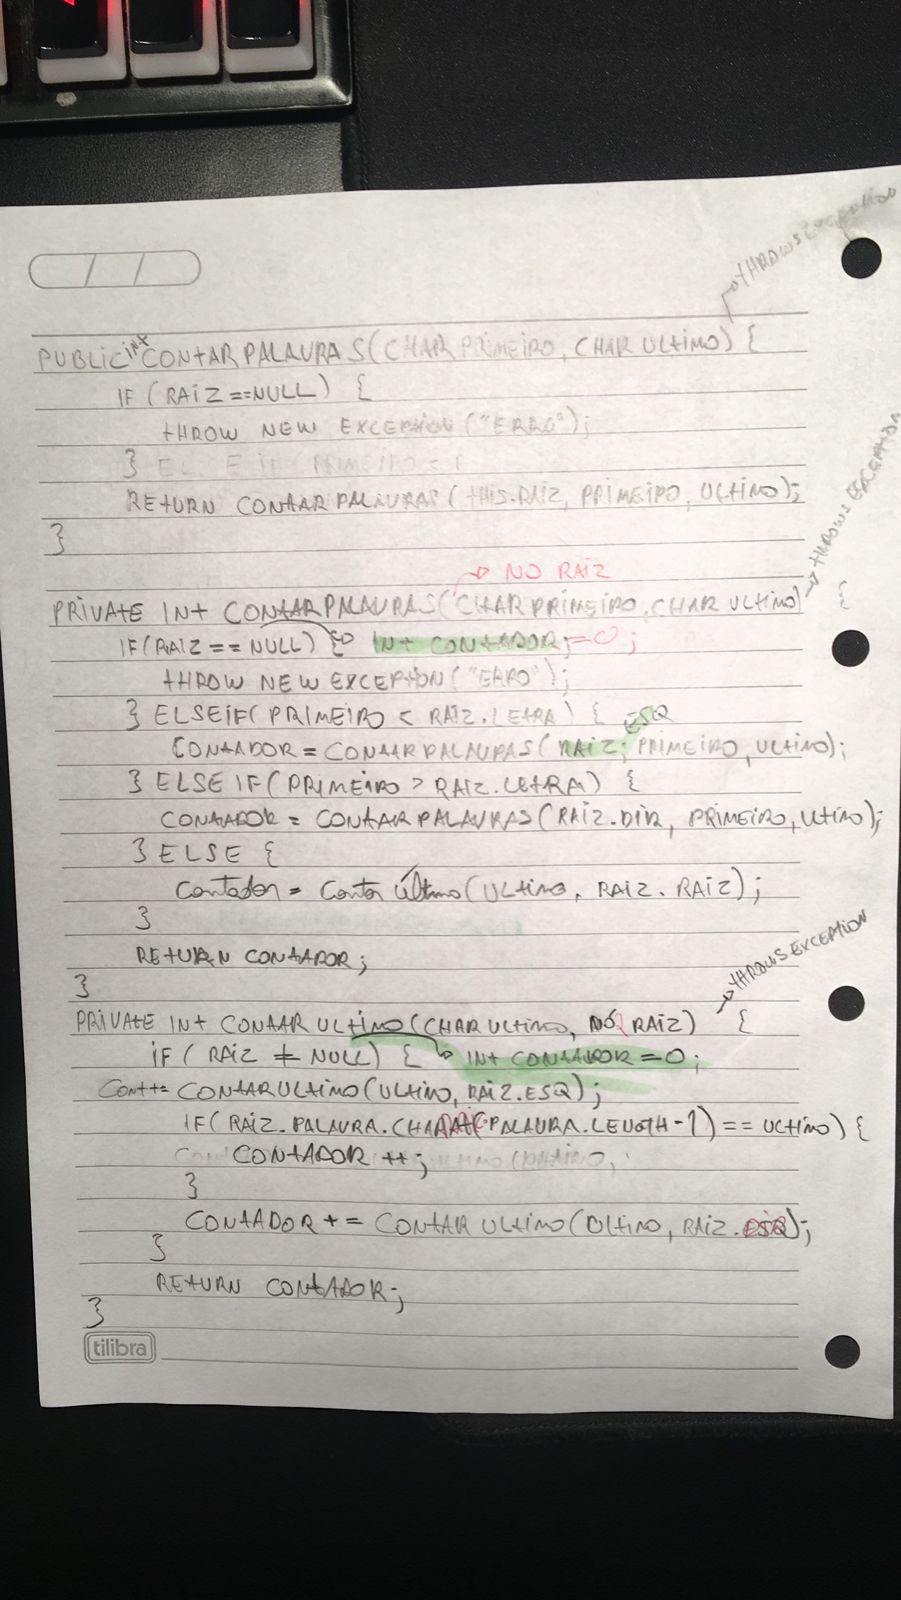 THROWS EXCEPTION
PUBLIC int CONTARPALAVRAS(CHAR PRIMEIRO, CHAR ULTIMO) {
IF (RAIZ == NULL) {
THROW NEW EXCEPTION ("ERRO");
} ELSE IF (PRIMEIRO <
RETURN CONTARPALAVRAS (THIS.RAIZ, PRIMEIRO, ULTIMO);
}
THROWS EXCEPTION
NO RAIZ
PRIVATE INT CONTARPALAVRAS(CHAR PRIMEIRO, CHAR ULTIMO) {
IF (RAIZ == NULL) { INT CONTADOR =0;
THROW NEW EXCEPTION("ERRO");
} ELSE IF( PRIMEIRO < RAIZ.LETRA) {
ESQ
CONTADOR = CONTARPALAVRAS( RAIZ. PRIMEIRO, ULTIMO);
} ELSE IF (PRIMEIRO > RAIZ.LETRA) {
CONTADOR = CONTARPALAVRAS(RAIZ.DIR, PRIMEIRO, ULTIMO);
} ELSE {
Contador = Contar Último(ULTIMO, RAIZ. RAIZ);
}
RETURN CONTADOR;
}
THROWS EXCEPTION
PRIVATE INT CONTAR ULTIMO(CHAR ULTIMO, NÓ RAIZ) {
IF ( RAIZ ≠ NULL) { INT CONTADOR =0;
Cont+= CONTARULTIMO(ULTIMO, RAIZ.ESQ);
IF(RAIZ.PALAVRA.CHARAT(PALAVRA.LENGTH-1) == ULTIMO) {
CONTADOR ++;
}
CONTADOR += CONTAR ULTIMO(ULTIMO, RAIZ.DIR);
}
RETURN CONTADOR;
}
tilibra